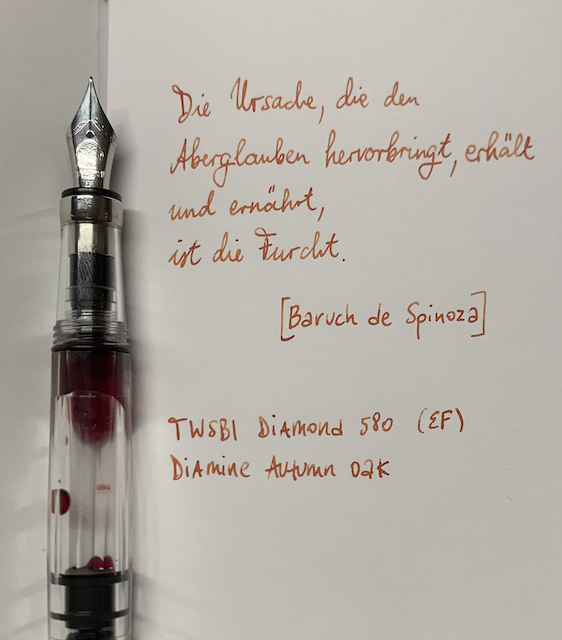 Die Ursache, die den
Aberglauben hervorbringt, erhält
und ernährt,
ist die Furcht.
[Baruch de Spinoza]
TWSBI Diamond 580 (EF)
Diamine Autumn Oak